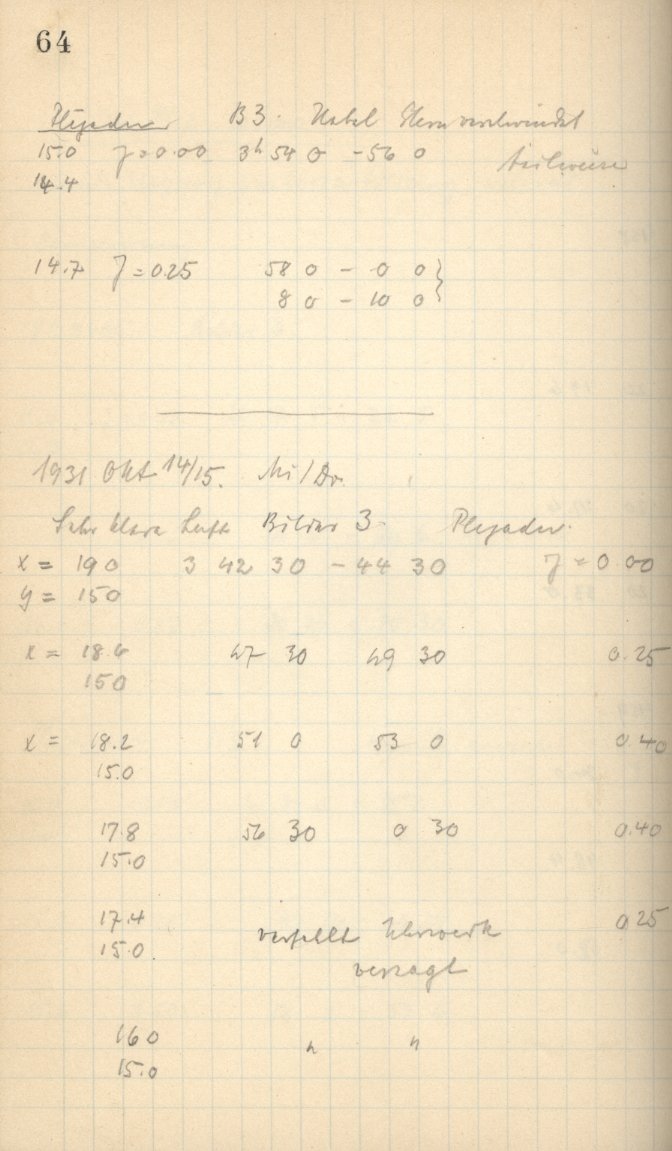 64
Plejaden B3. Nebel Stern verschwindet
15.0 J=0.00 3h 54 0 -56 0 teilweise
14.4
14.7 J=0.25 58 0 - 0 0}
8 0 - 10 0}
1931 Okt 14/15. Mi/Do.
Sehr klare Luft Bilder 3. Plejaden.
x = 19 0 3 42 30 - 44 30 J = 0.00
y = 150
x = 18.6 47 30 49 30 0.25
150
x = 18.2 51 0 53 0 0 40
15.0
17.8 56 30 0 30 0.40
15.0
17.4 verfehlt Uhrwerk 0.25
15.0 versagt
16 0 " "
15.0